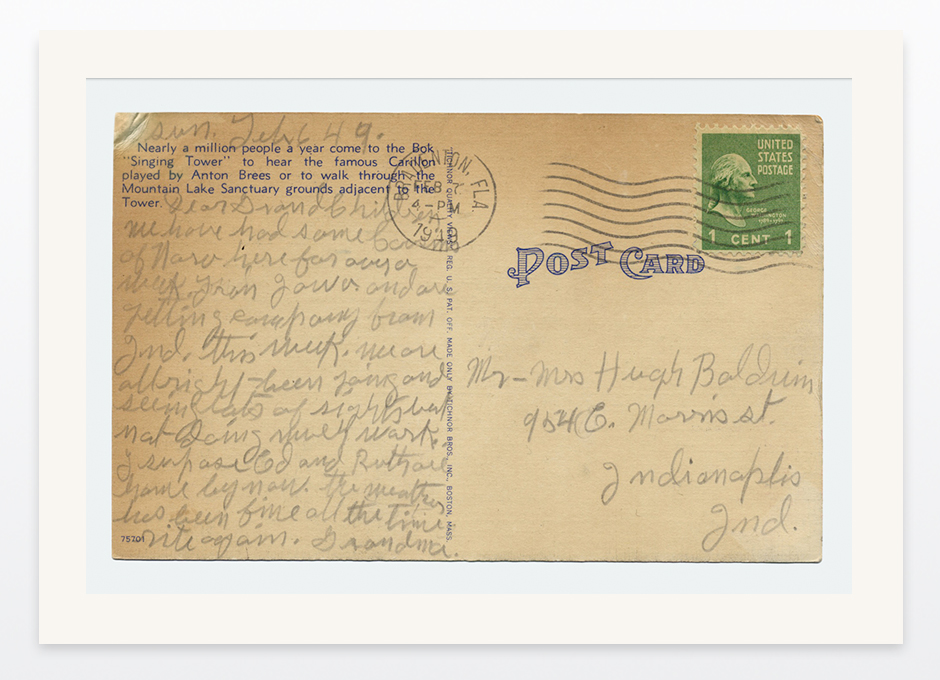 Sun. Feb 6 49.
Nearly a million people a year come to the Bok
"Singing Tower" to hear the famous Carillon
played by Anton Brees or to walk through the
Mountain Lake Sanctuary grounds adjacent to the
Tower.
Dear Grandchildren
we have had some
of here for over a
week from and are
getting company from
Ind. this week. we are
allright - been going and
seeing lots of sights but
not doing much work.
I supose Ed and Ruth are
home by now. the weather
has been fine all the time
rite again. Grandma.
75701
TICHNOR QUALITY VIEWS, REG. U. S. PAT. OFF. MADE ONLY BY TICHNOR BROS., INC., BOSTON, MASS.
BRADENTON, FLA.
FEB 7
4-PM
UNITED
STATES
POSTAGE
GEORGE
WASHINGTON
1 CENT 1
POST CARD
Mr - Mrs Hugh Baldwin
954 E. Morris st.
Indianaplis
Ind.